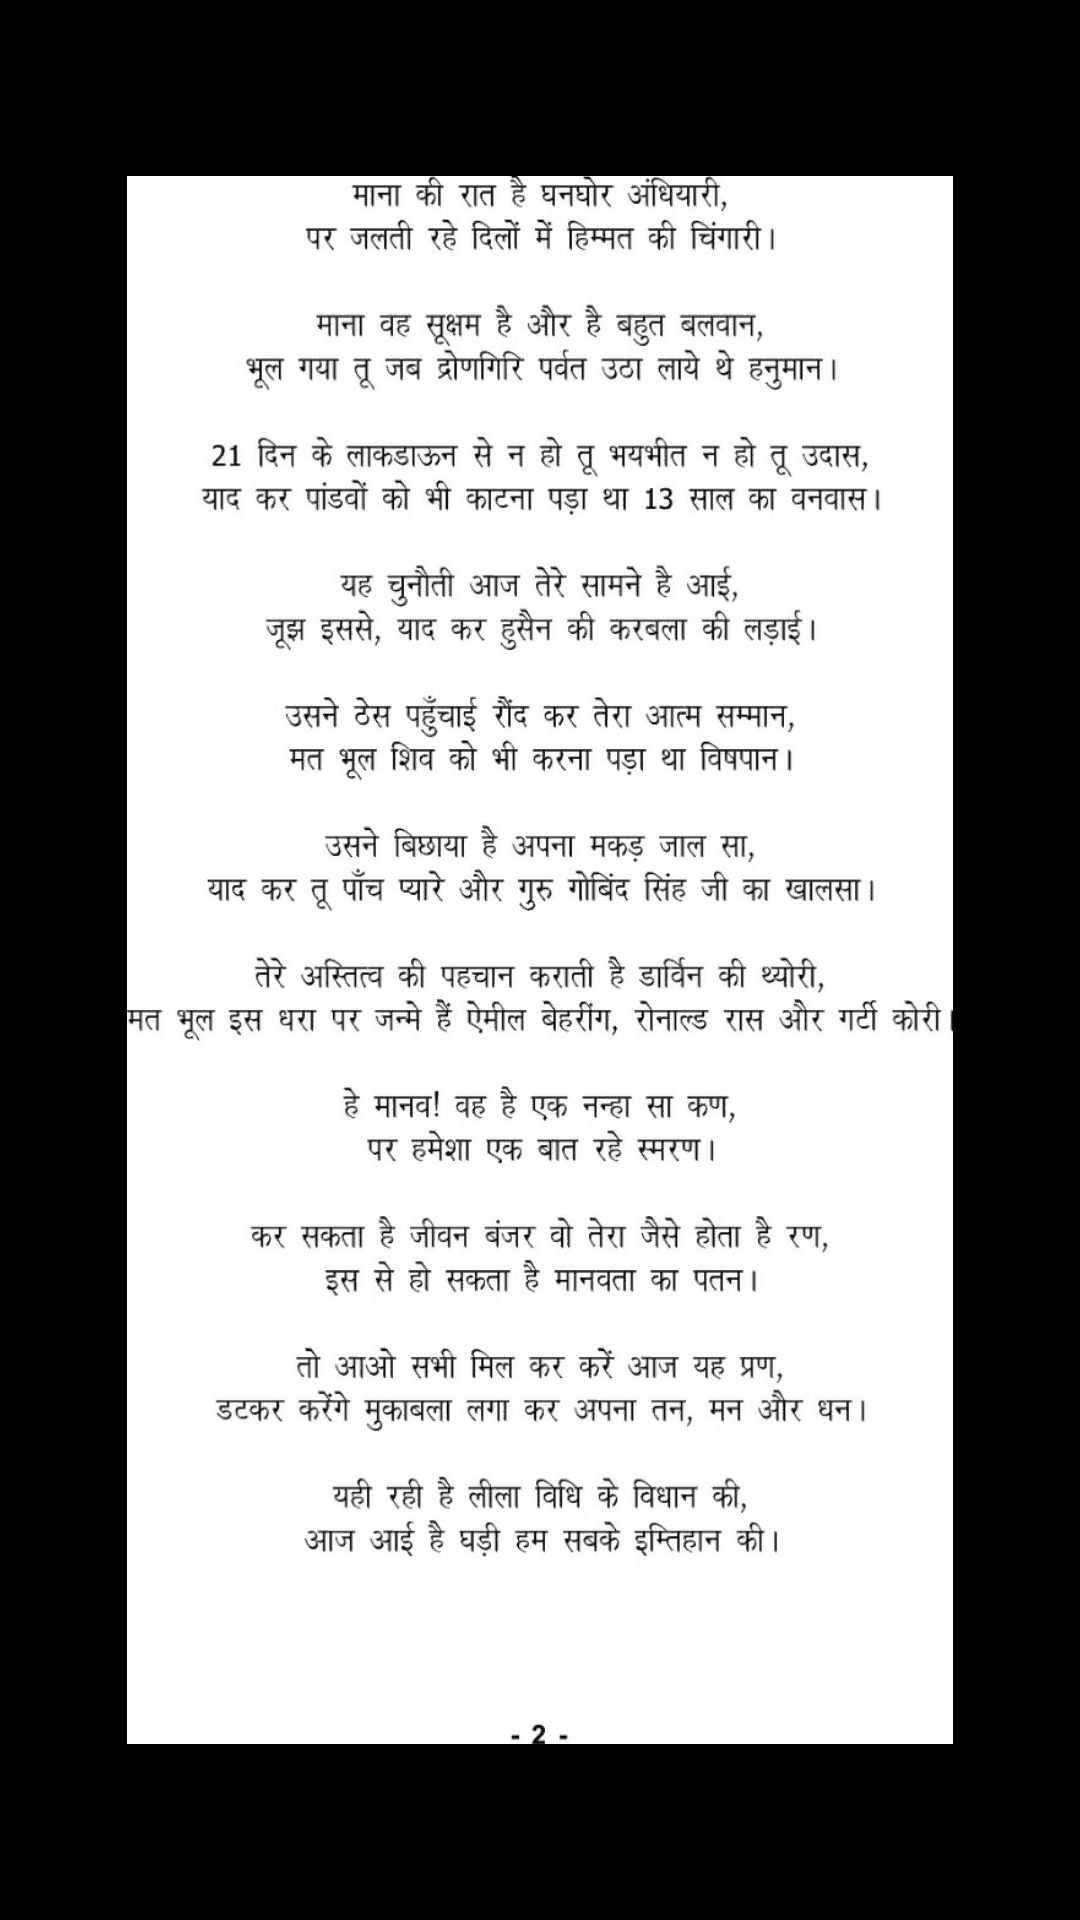 माना की रात है घनघोर अंधियारी,
पर जलती रहे दिलों में हिम्मत की चिंगारी।
माना वह सूक्षम है और है बहुत बलवान,
भूल गया तू जब द्रोणगिरि पर्वत उठा लाये थे हनुमान।
21 दिन के लाकडाऊन से न हो तू भयभीत न हो तू उदास,
याद कर पांडवों को भी काटना पड़ा था 13 साल का वनवास।
यह चुनौती आज तेरे सामने है आई,
जूझ इससे, याद कर हुसैन की करबला की लड़ाई।
उसने ठेस पहुँचाई रौंद कर तेरा आत्म सम्मान,
मत भूल शिव को भी करना पड़ा था विषपान।
उसने बिछाया है अपना मकड़ जाल सा,
याद कर तू पाँच प्यारे और गुरु गोबिंद सिंह जी का खालसा।
तेरे अस्तित्व की पहचान कराती है डार्विन की थ्योरी,
मत भूल इस धरा पर जन्मे हैं ऐमील बेहरींग, रोनाल्ड रास और गर्टी कोरी।
हे मानव! वह है एक नन्हा सा कण,
पर हमेशा एक बात रहे स्मरण।
कर सकता है जीवन बंजर वो तेरा जैसे होता है रण,
इस से हो सकता है मानवता का पतन।
तो आओ सभी मिल कर करें आज यह प्रण,
डटकर करेंगे मुकाबला लगा कर अपना तन, मन और धन।
यही रही है लीला विधि के विधान की,
आज आई है घड़ी हम सबके इम्तिहान की।
- 2 -